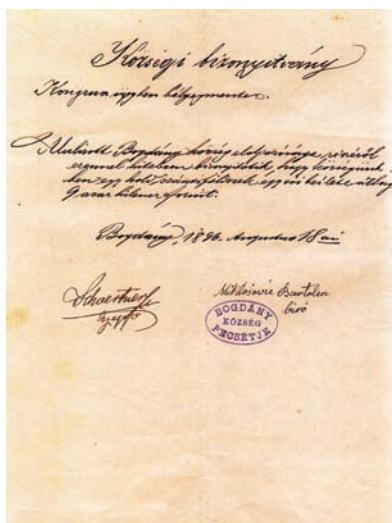 Községi bizonyitvány
Kongrua ügyben bélyegmentes.
Alulirott Bogdány község elöljárósága részéről
ezennel hitelesen bizonyittatik, hogy községünk-
ben egy hold szántóföldnek egy évi
9 azaz kilenc forint.
Bogdány, 1896. Augusztus 18 án
jegyző
Miklósovic Bartolen
biró
BOGDÁNY
KÖZSÉG
PECSÉTJE